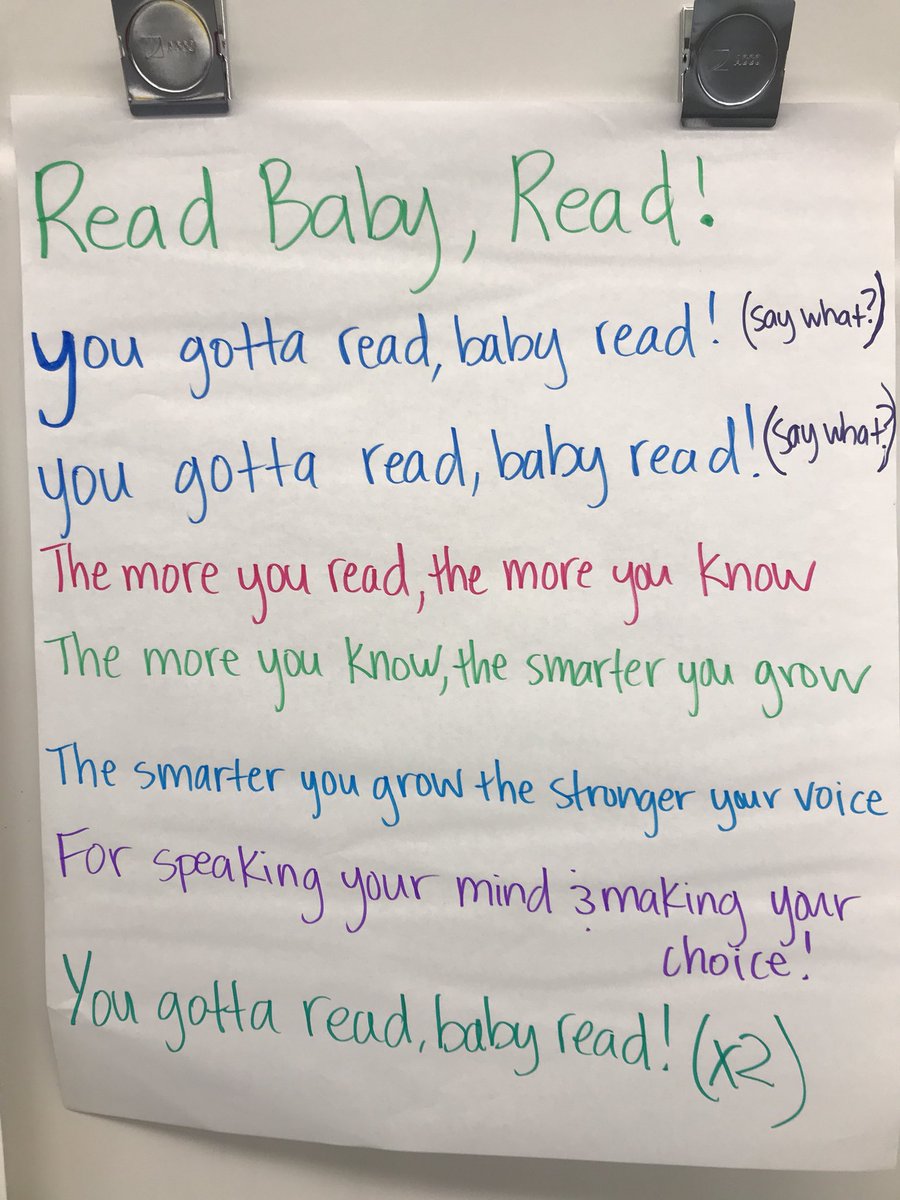 Read Baby, Read!
you gotta read, baby read! (say what?)
you gotta read, baby read! (say what?)
The more you read, the more you know
The more you know, the smarter you grow
The smarter you grow the stronger your voice
For speaking your mind & making your
choice!
You gotta read, baby read! (x2)